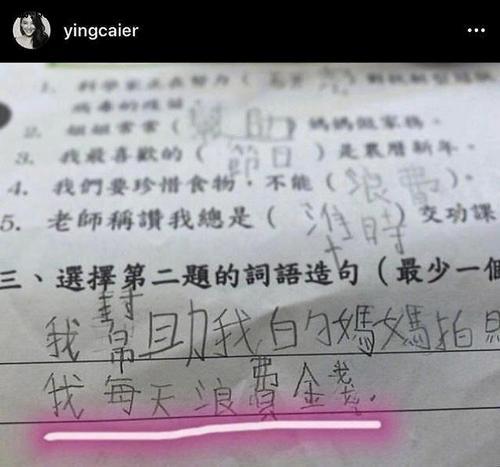 yingcaier
1. 科學家正在努力（ ）對抗新型冠狀
病毒的疫苗
2. 姐姐常常（幫助）媽媽做家務。
3. 我最喜歡的（節日）是農曆新年。
4. 我們要珍惜食物，不能（浪費）。
5. 老師稱讚我總是（準時）交功課
三、選擇第二題的詞語造句（最少一個
我幫助我的媽媽拍
我每天浪費金錢.